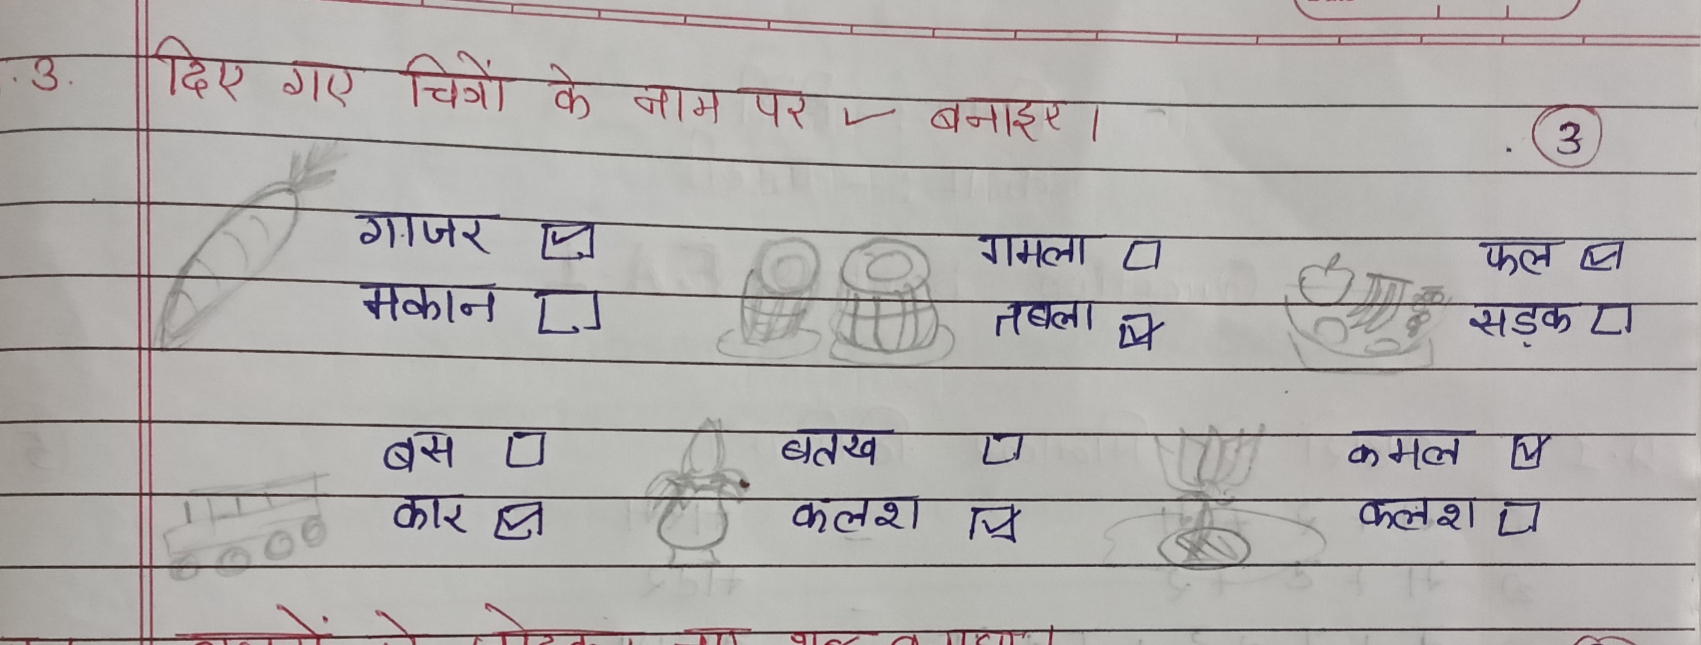 3. दिए गए चित्रों के नाम पर ✓ बनाइए।
3
गाजर ☑ गमला ☐ फल ☑
मकान ☐ तबला ☑ सड़क ☐
बस ☐ बतख ☐ कमल ☑
कार ☑ कलश ☑ कलश ☐